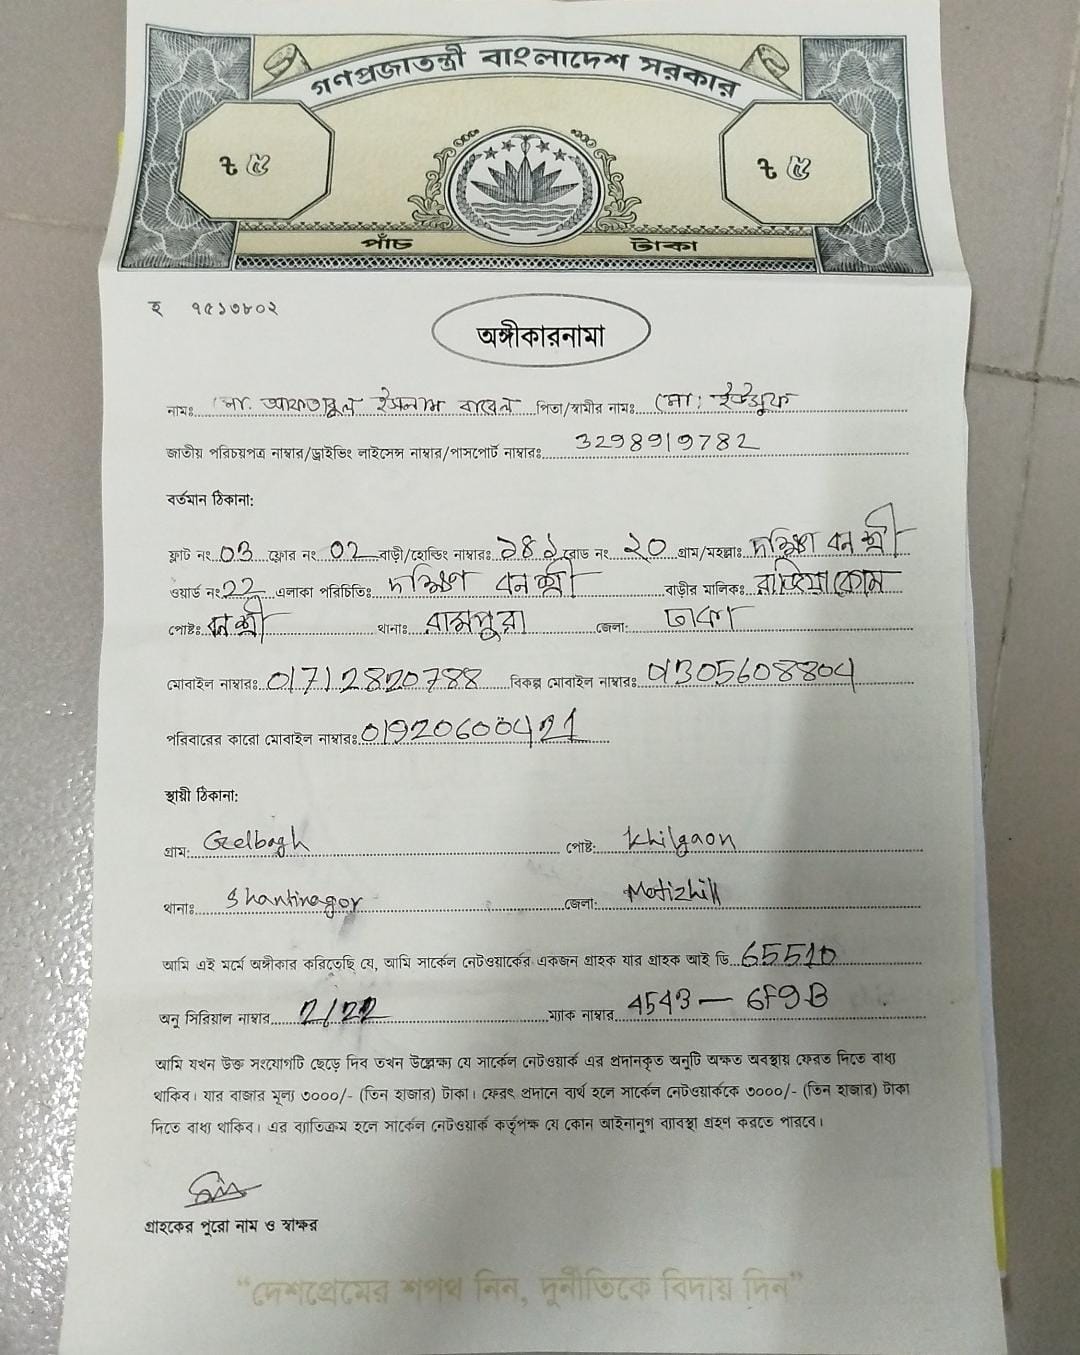 গণপ্রজাতন্ত্রী বাংলাদেশ সরকার
৳ ৫ ৳ ৫
পাঁচ টাকা
হ ৭৫১৩৮০২
অঙ্গীকারনামা
নামঃ মো. আফতাবুল ইসলাম পিতা/স্বামীর নামঃ মো: ইউসুফ
জাতীয় পরিচয়পত্র নাম্বার/ড্রাইভিং লাইসেন্স নাম্বার/পাসপোর্ট নাম্বারঃ 3298919782
বর্তমান ঠিকানা:
ফ্লাট নং 03 ফ্লোর নং 02 বাড়ী/হোল্ডিং নাম্বারঃ ১৪১ রোড নং ২০ গ্রাম/মহল্লাঃ দক্ষিণ বনশ্রী
ওয়ার্ড নং 22 এলাকা পরিচিতিঃ দক্ষিণ বনশ্রী বাড়ীর মালিকঃ রাজিয়া
পোষ্টঃ বনশ্রী থানাঃ রামপুরা জেলা: ঢাকা
মোবাইল নাম্বারঃ 01712820788 বিকল্প মোবাইল নাম্বারঃ 01305608804
পরিবারের কারো মোবাইল নাম্বারঃ 01920600421
স্থায়ী ঠিকানা:
গ্রাম: Golbagh পোষ্ট: Khilgaon
থানাঃ Shantinagor জেলা: Motizhill
আমি এই মর্মে অঙ্গীকার করিতেছি যে, আমি সার্কেল নেটওয়ার্কের একজন গ্রাহক যার গ্রাহক আই ডি 65510
অনু সিরিয়াল নাম্বার 2/22 ম্যাক নাম্বার 4543 — 6F9B
আমি যখন উক্ত সংযোগটি ছেড়ে দিব তখন উল্লেক্ষ্য যে সার্কেল নেটওয়ার্ক এর প্রদানকৃত অনুটি অক্ষত অবস্থায় ফেরত দিতে বাধ্য
থাকিব। যার বাজার মূল্য ৩০০০/- (তিন হাজার) টাকা। ফেরৎ প্রদানে ব্যর্থ হলে সার্কেল নেটওয়ার্ককে ৩০০০/- (তিন হাজার) টাকা
দিতে বাধ্য থাকিব। এর ব্যতিক্রম হলে সার্কেল নেটওয়ার্ক কর্তৃপক্ষ যে কোন আইনানুগ ব্যবস্থা গ্রহণ করতে পারবে।
গ্রাহকের পুরো নাম ও স্বাক্ষর
“দেশপ্রেমের শপথ নিন, দুর্নীতিকে বিদায় দিন”